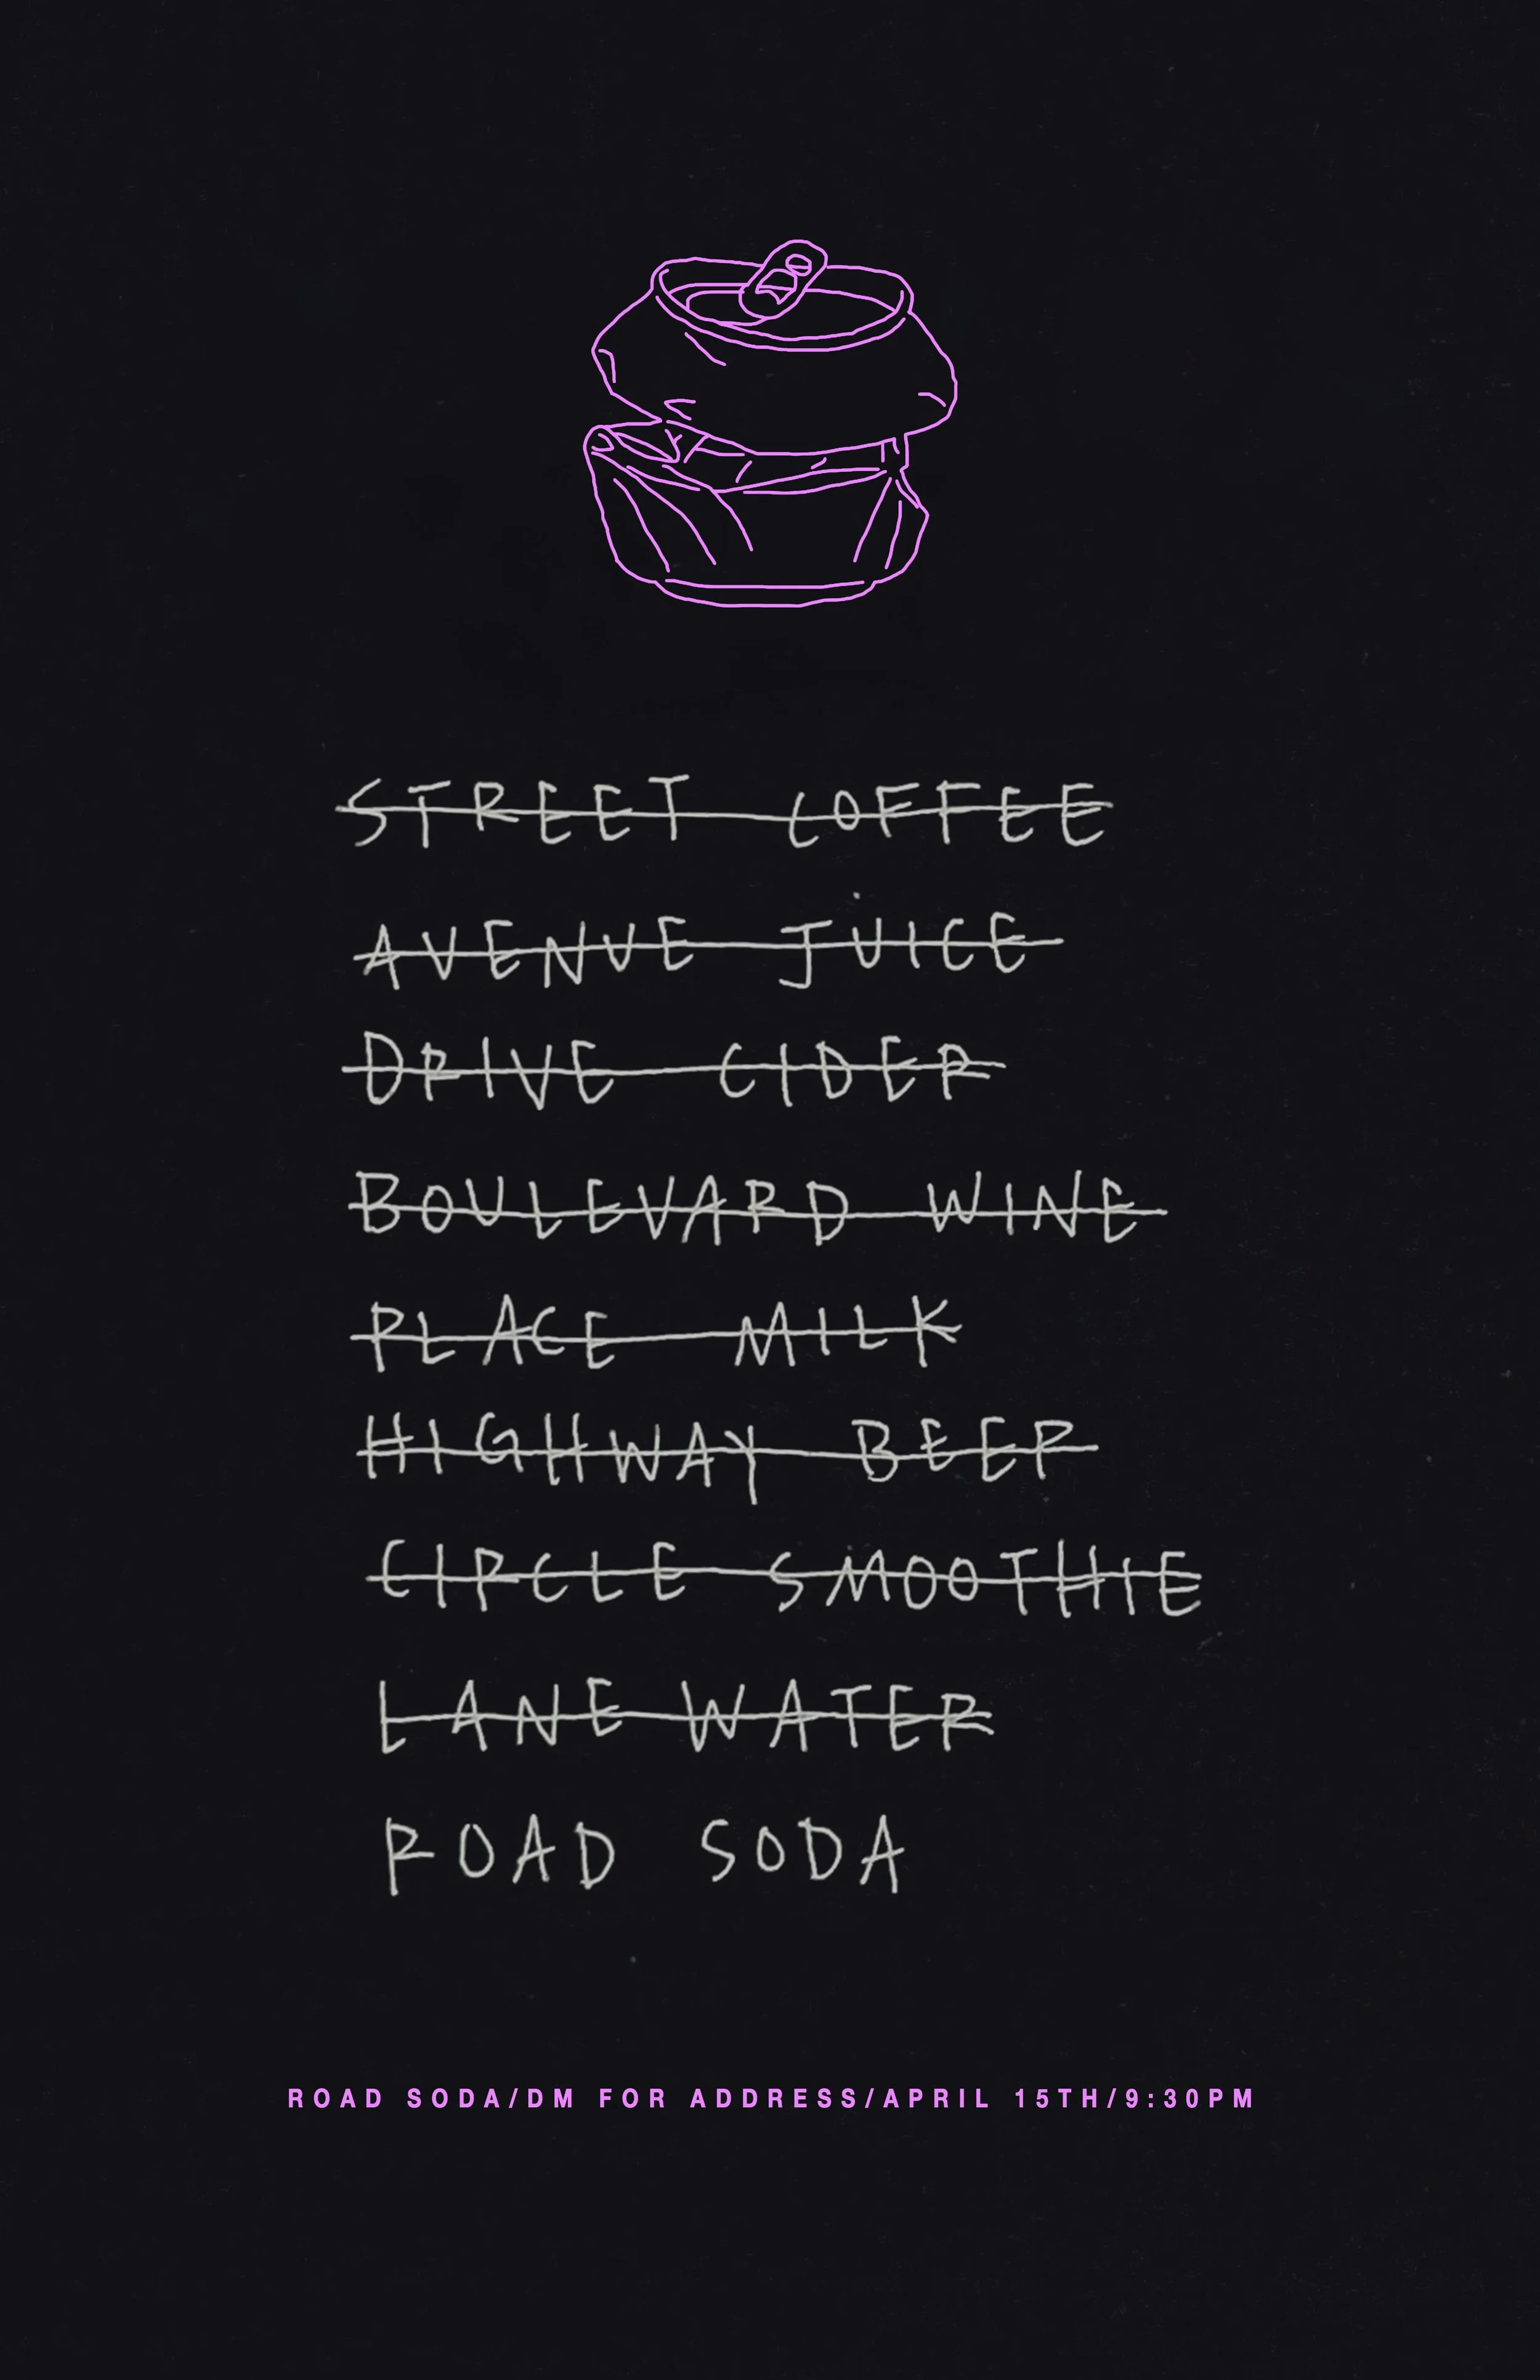 STREET COFFEE
AVENUE JUICE
DRIVE CIDER
BOULEVARD WINE
PLACE MILK
HIGHWAY BEER
CIRCLE SMOOTHIE
LANE WATER
ROAD SODA
ROAD SODA/DM FOR ADDRESS/APRIL 15TH/9:30PM